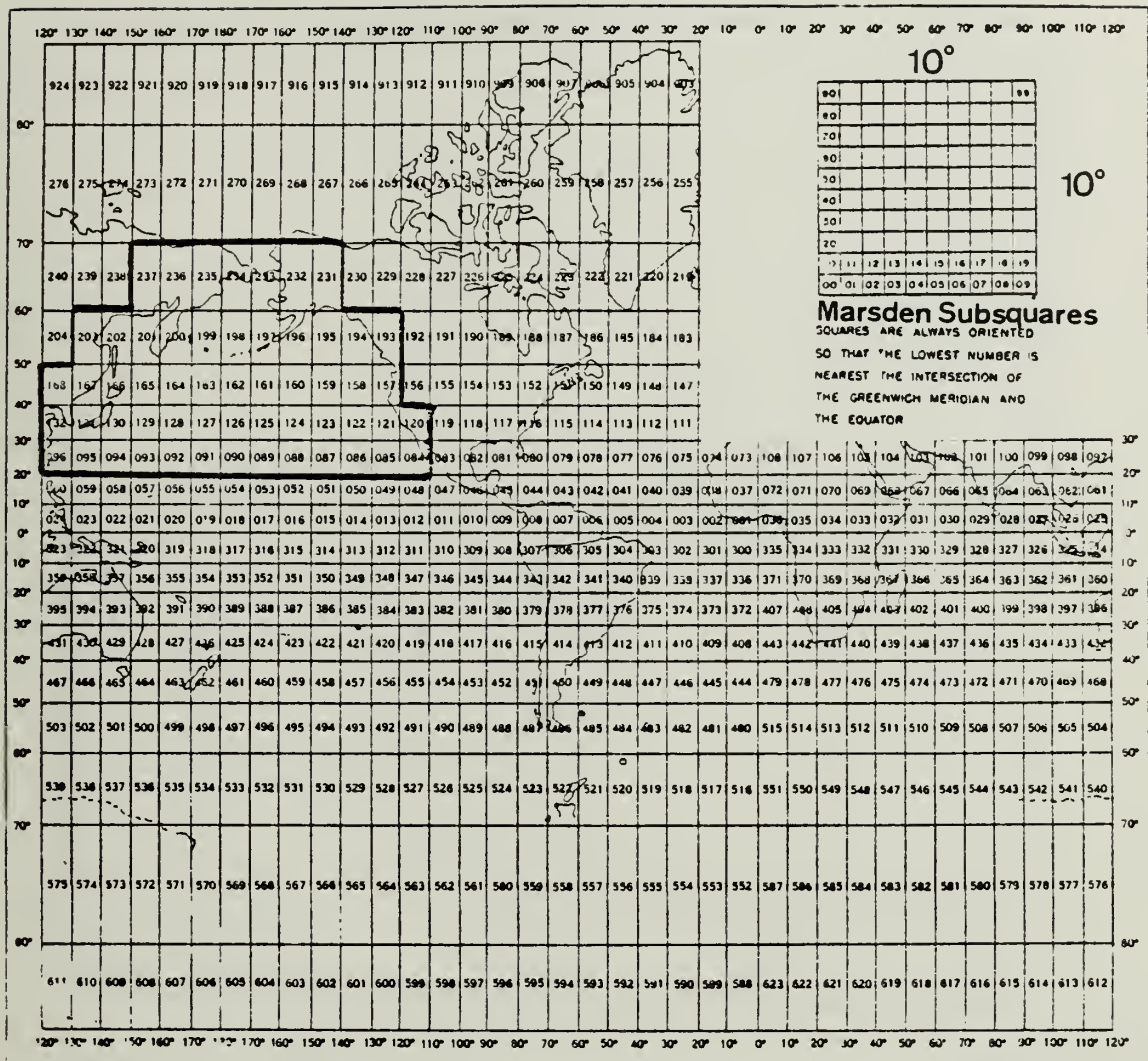 120° 130° 140° 150° 160° 170° 180° 170° 160° 150° 140° 130° 120° 110° 100° 90° 80° 70° 60° 50° 40° 30° 20° 10° 0° 10° 20° 30° 40° 50° 60° 70° 80° 90° 100° 110° 120°
10°
924 923 922 921 920 919 918 917 916 915 914 913 912 911 910 909 908 907 905 904 903
90 99
80
80°
70
10°
276 275 274 273 272 271 270 269 268 267 266 265 262 261 260 259 258 257 256 255
40
20
70°
11 12 13 14 15 16 17 18 19
240 239 238 237 236 235 234 232 231 230 229 228 227 226 224 223 222 221 220 219
00 01 02 03 04 05 06 07 08 09
60°
Marsden Subsquares
SQUARES ARE ALWAYS ORIENTED
204 203 202 201 200 199 198 197 196 195 194 193 192 191 190 189 188 187 186 185 184 183
SO THAT THE LOWEST NUMBER IS
50°
NEAREST THE INTERSECTION OF
168 167 166 165 164 163 162 161 160 159 158 157 156 155 154 153 152 151 150 149 148 147
THE GREENWICH MERIDIAN AND
40°
THE EQUATOR
130 129 128 127 126 125 124 123 122 121 120 119 118 117 116 115 114 113 112 111
30° 30°
096 095 094 093 092 091 090 089 088 087 086 085 084 083 082 081 080 079 078 077 076 075 074 073 108 107 106 105 104 103 102 101 100 099 098 097
20° 20°
059 058 057 056 055 054 053 052 051 050 049 048 047 046 045 044 043 042 041 040 039 038 037 072 071 070 069 068 067 066 065 064 063 062 061
10° 10°
023 022 021 020 019 018 017 016 015 014 013 012 011 010 009 008 007 006 005 004 003 002 001 036 035 034 033 032 031 030 029 028 027 026 025
0° 0°
323 322 321 320 319 318 317 316 315 314 313 312 311 310 309 308 307 306 305 304 303 302 301 300 335 334 333 332 331 330 329 328 327 326 325 324
10° 10°
359 358 357 356 355 354 353 352 351 350 349 348 347 346 345 344 343 342 341 340 339 338 337 336 371 370 369 368 367 366 365 364 363 362 361 360
20° 20°
395 394 393 392 391 390 389 388 387 386 385 384 383 382 381 380 379 378 377 376 375 374 373 372 407 406 405 404 403 402 401 400 399 398 397 396
30° 30°
431 430 429 428 427 426 425 424 423 422 421 420 419 418 417 416 415 414 413 412 411 410 409 408 443 442 441 440 439 438 437 436 435 434 433 432
40° 40°
467 466 465 464 463 462 461 460 459 458 457 456 455 454 453 452 451 450 449 448 447 446 445 444 479 478 477 476 475 474 473 472 471 470 469 468
50° 50°
503 502 501 500 499 498 497 496 495 494 493 492 491 490 489 488 487 486 485 484 483 482 481 480 515 514 513 512 511 510 509 508 507 506 505 504
60° 60°
539 538 537 536 535 534 533 532 531 530 529 528 527 526 525 524 523 522 521 520 519 518 517 516 551 550 549 548 547 546 545 544 543 542 541 540
70° 70°
575 574 573 572 571 570 569 568 567 566 565 564 563 562 561 560 559 558 557 556 555 554 553 552 587 586 585 584 583 582 581 580 579 578 577 576
80° 80°
611 610 609 608 607 606 605 604 603 602 601 600 599 598 597 596 595 594 593 592 591 590 589 588 623 622 621 620 619 618 617 616 615 614 613 612
120° 130° 140° 150° 160° 170° 160° 150° 140° 130° 120° 110° 100° 90° 80° 70° 60° 50° 40° 30° 20° 10° 0° 10° 20° 30° 40° 50° 60° 70° 80° 90° 100° 110° 120°